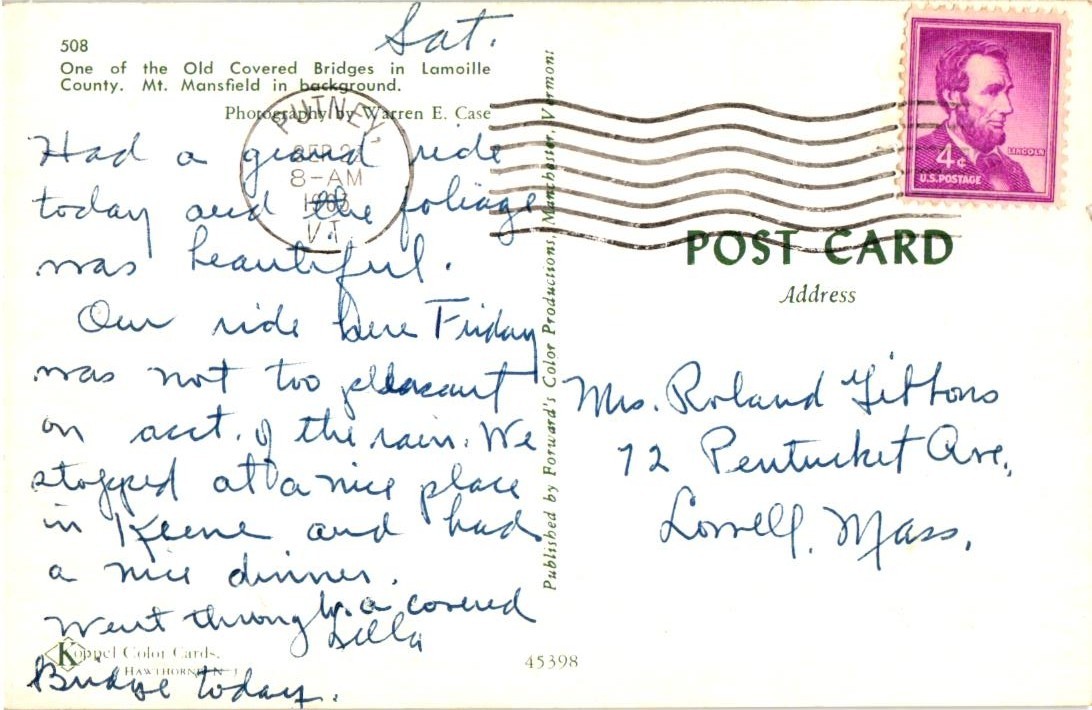 Sat.
508
One of the Old Covered Bridges in Lamoille
County. Mt. Mansfield in background.
Photography by Warren E. Case
PUTNEY,
SEP 2
8-AM
VT.
Had a grand ride
today and the foliage
was beautiful.
Our ride here Friday
was not too pleasant
on acct. of the rain. We
stopped at a nice place
in Keene and had
a nice dinner.
Went through a covered
Bridge today.
Lilla
Koppel Color Cards,
HAWTHORNE N J
Published by Forward's Color Productions, Manchester, Vermont
45398
4¢
LINCOLN
U.S. POSTAGE
POST CARD
Address
Mrs. Roland Gibbons
72 Pentucket Ave.
Lowell, Mass.